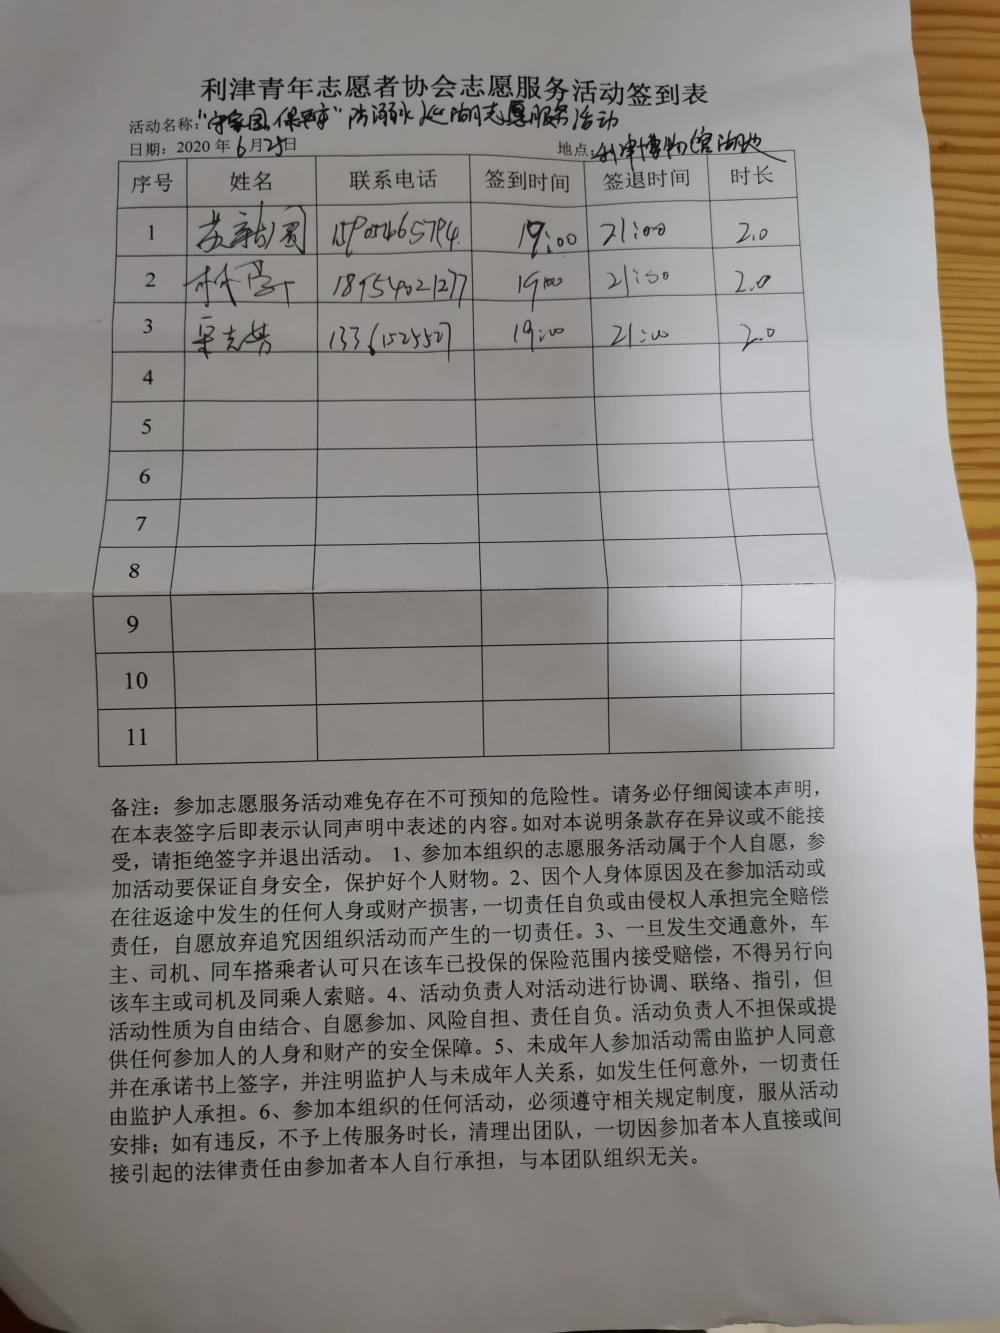 利津青年志愿者协会志愿服务活动签到表
活动名称："守家园 保平安" 防溺水巡湖志愿服务活动
日期：2020 年 6 月 25 日 地点：利津博物馆湖边
序号 姓名 联系电话 签到时间 签退时间 时长
1 苏新国 15905465794 19:00 21:00 2.0
2 林 18954021277 19:00 21:00 2.0
3 13361525527 19:00 21:00 2.0
4
5
6
7
8
9
10
11
备注：参加志愿服务活动难免存在不可预知的危险性。请务必仔细阅读本声明，
在本表签字后即表示认同声明中表述的内容。如对本说明条款存在异议或不能接
受，请拒绝签字并退出活动。 1、参加本组织的志愿服务活动属于个人自愿，参
加活动要保证自身安全，保护好个人财物。2、因个人身体原因及在参加活动或
在往返途中发生的任何人身或财产损害，一切责任自负或由侵权人承担完全赔偿
责任，自愿放弃追究因组织活动而产生的一切责任。3、一旦发生交通意外，车
主、司机、同车搭乘者认可只在该车已投保的保险范围内接受赔偿，不得另行向
该车主或司机及同乘人索赔。4、活动负责人对活动进行协调、联络、指引，但
活动性质为自由结合、自愿参加、风险自担、责任自负。活动负责人不担保或提
供任何参加人的人身和财产的安全保障。5、未成年人参加活动需由监护人同意
并在承诺书上签字，并注明监护人与未成年人关系，如发生任何意外，一切责任
由监护人承担。6、参加本组织的任何活动，必须遵守相关规定制度，服从活动
安排；如有违反，不予上传服务时长，清理出团队，一切因参加者本人直接或间
接引起的法律责任由参加者本人自行承担，与本团队组织无关。